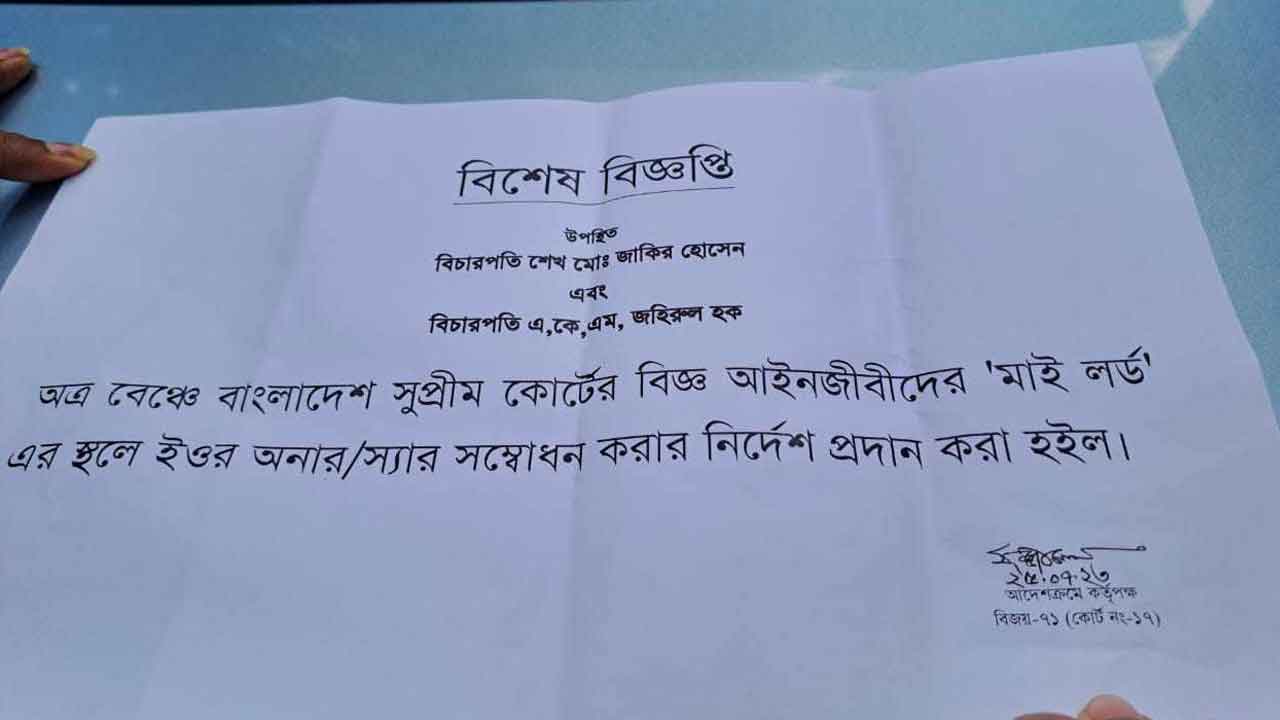 বিশেষ বিজ্ঞপ্তি
উপস্থিত
বিচারপতি শেখ মোঃ জাকির হোসেন
এবং
বিচারপতি এ,কে,এম, জহিরুল হক
অত্র বেঞ্চে বাংলাদেশ সুপ্রীম কোর্টের বিজ্ঞ আইনজীবীদের 'মাই লর্ড'
এর স্থলে ইওর অনার/স্যার সম্বোধন করার নির্দেশ প্রদান করা হইল।
২৫.০৭.২৩
আদেশক্রমে কর্তৃপক্ষ
বিজয়-৭১ (কোর্ট নং-১৭)